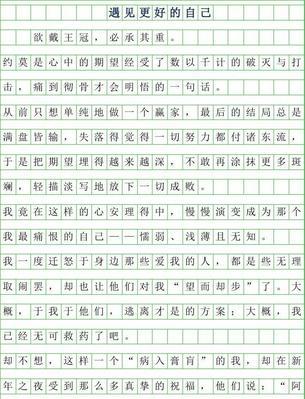 遇见更好的自己
欲戴王冠，必承其重。
约莫是心中的期望经受了数以千计的破灭与打
击，痛到彻骨才会明悟的一句话。
从前只想单纯地做一个赢家，最后的结局总是
满盘皆输，失落得觉得一切努力都付诸东流，
于是把期望埋得越来越深，不敢再涂抹更多斑
斓，轻描淡写地放下一切成败。
我竟在这样的心安理得中，慢慢演变成为那个
我最痛恨的自己——懦弱、浅薄且无知。
我一度迁怒于身边那些爱我的人，都是些无理
取闹罢，却也让他们对我“望而却步”了。大
概，于我于他们，逃离才是的方案；大概，我
已经无可救药了吧。
却不想，这样一个“病入音肓”的我，却在新
年之夜受到那么多真挚的祝福，他们说：“阿